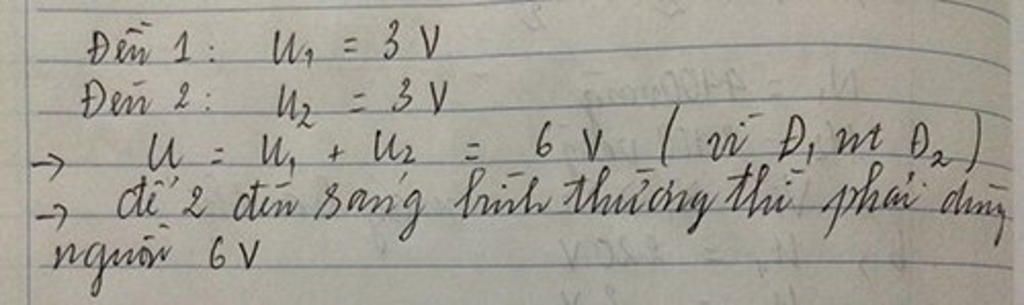 Đèn 1: U₁ = 3 V
Đèn 2: U₂ = 3 V
→ U = U₁ + U₂ = 6 V ( vì Đ₁ nt Đ₂ )
→ để 2 đèn sáng bình thường thì phải dùng
nguồn 6 V